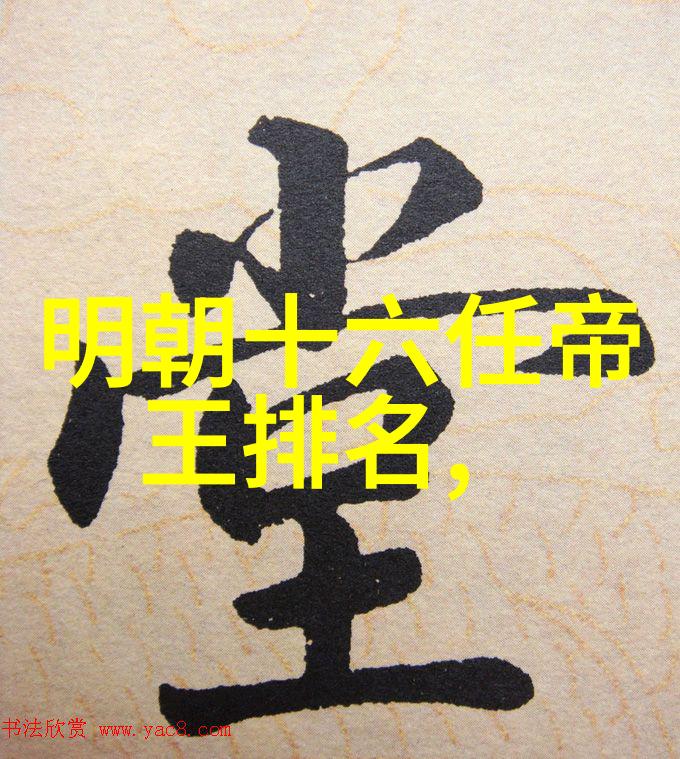 堂
明朝十六任帝
王排名，
书法欣赏 www.yac8.com